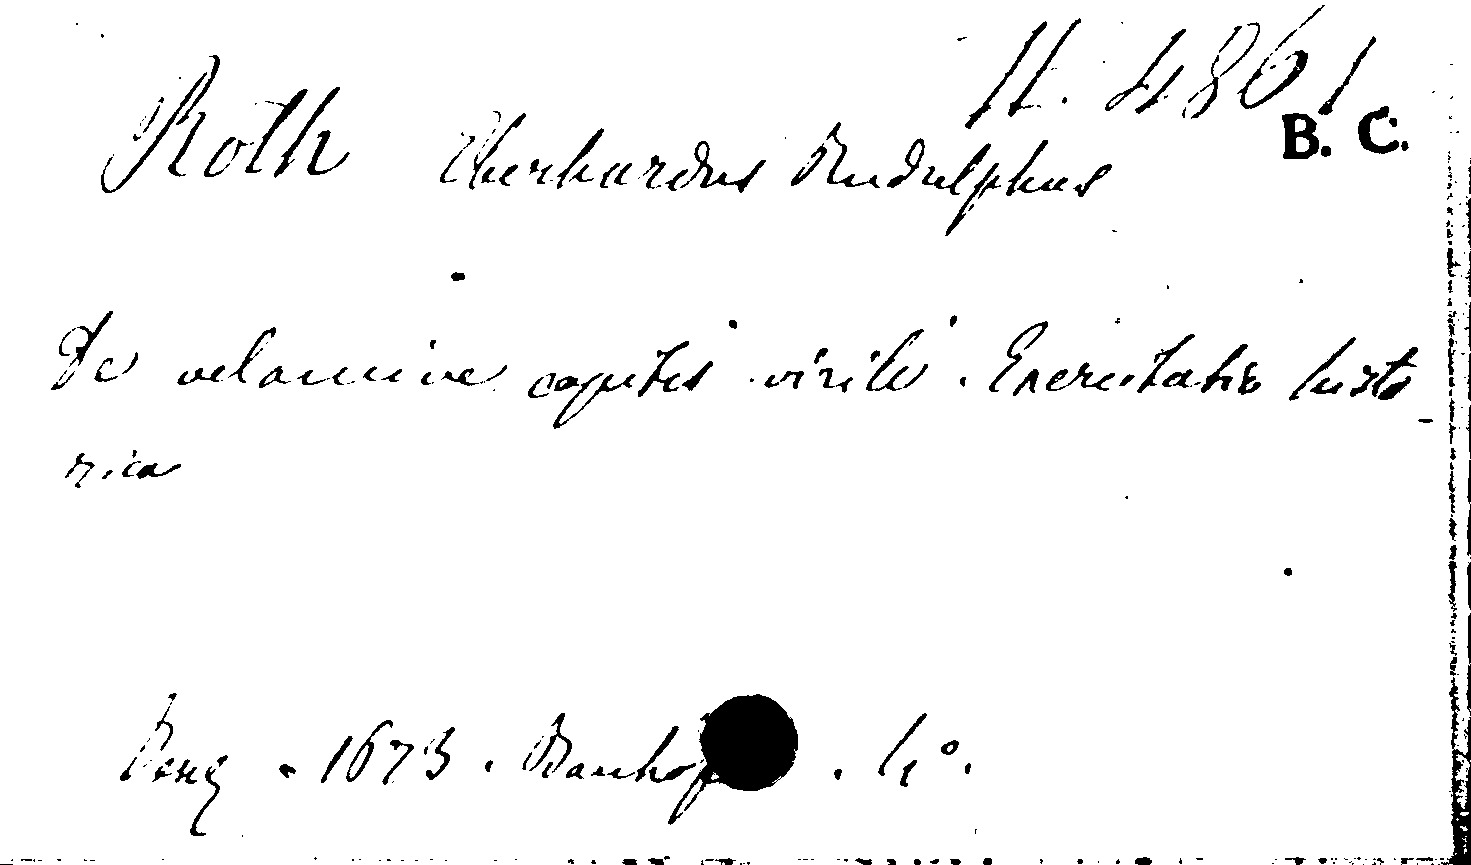 H. 4861
B. C.
Roth Eberhardus Rudulphus
De velamine capitis virili. Exercitatio histo-
rica
1673. Bauhof . 4°.